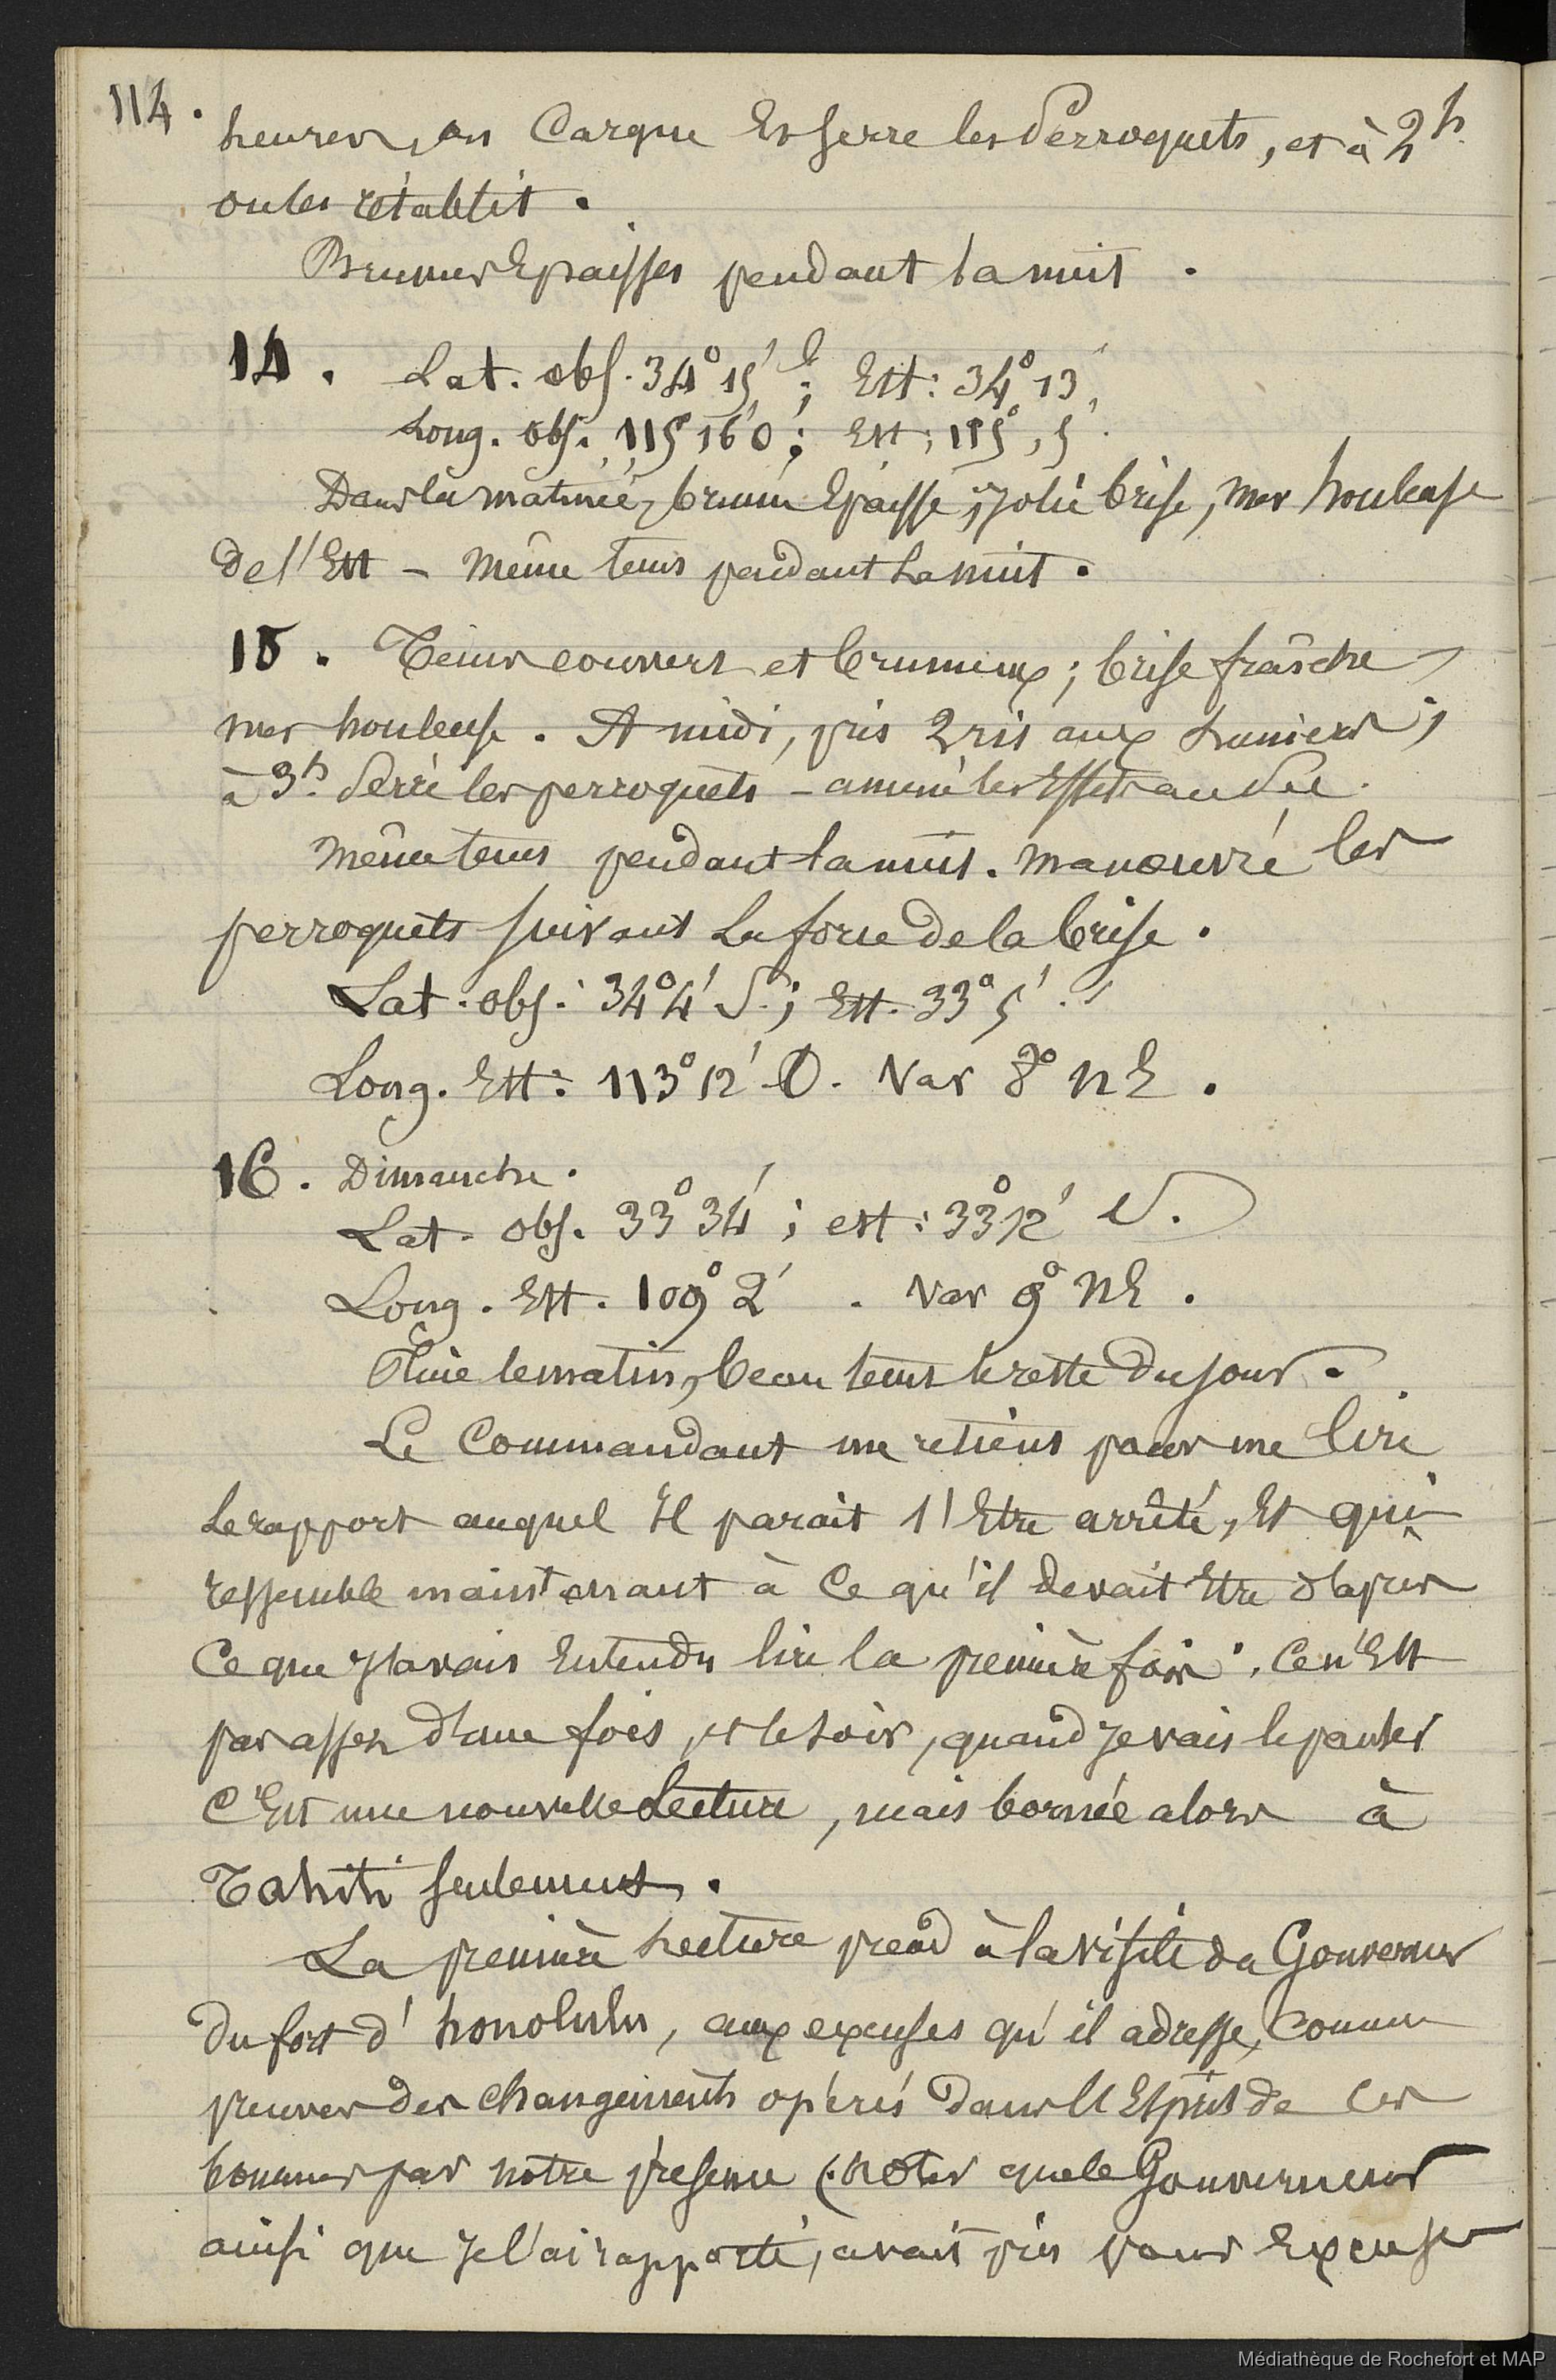 114.
heures, on Cargue Et serre les Perroquets, et à 2h.
on les rétablit.
Brumes Epaisses pendant la nuit.
14. Lat. obs. 34° 15' ; Est: 34° 13'
Long. obs. 115° 16' O ; Est: 115°, 5'.
Dans la matinée, brume Epaisse, jolie brise, mer houleuse
de l'Est - Même tems pendant La nuit.
15. Tems couvert et brumeux ; brise fraîche,
mer houleuse. A midi, pris 2 ris aux huniers ;
à 3h. Serré les perroquets - amené les Effets au Sec.
Même tems pendant la nuit. Manœuvré les
perroquets suivant La force de la brise.
Lat. obs. 34° 4' S. ; Est. 33° 5'.
Long. Est: 113° 12' O. Var 8° NE.
16. Dimanche.
Lat. obs. 33° 34' ; est: 33° 12' S.
Long. Est. 109° 2'. Var 9° NE.
Pluie le matin, beau tems le reste du jour.
Le Commandant me retient pour me lire
Le rapport auquel Il parait s'Etre arrêté, Et qui
ressemble maintenant à Ce qu'il devait Etre d'après
Ce que j'avais Entendu lire la première fois. Ce n'Est
pas assez d'une fois, et le soir, quand je vais le panser
C'Est une nouvelle Lecture, mais bornée alors à
Tahiti seulement.
La première Lecture prend à la visite du Gouverneur
du fort d'honolulu, aux excuses qu'il adresse, Comme
preuves des Changements opérés dans l'Esprit de Ces
hommes par notre présence (noter que le Gouverneur
ainsi que je l'ai rapporté, avait pris pour Excuse
Médiathèque de Rochefort et MAP